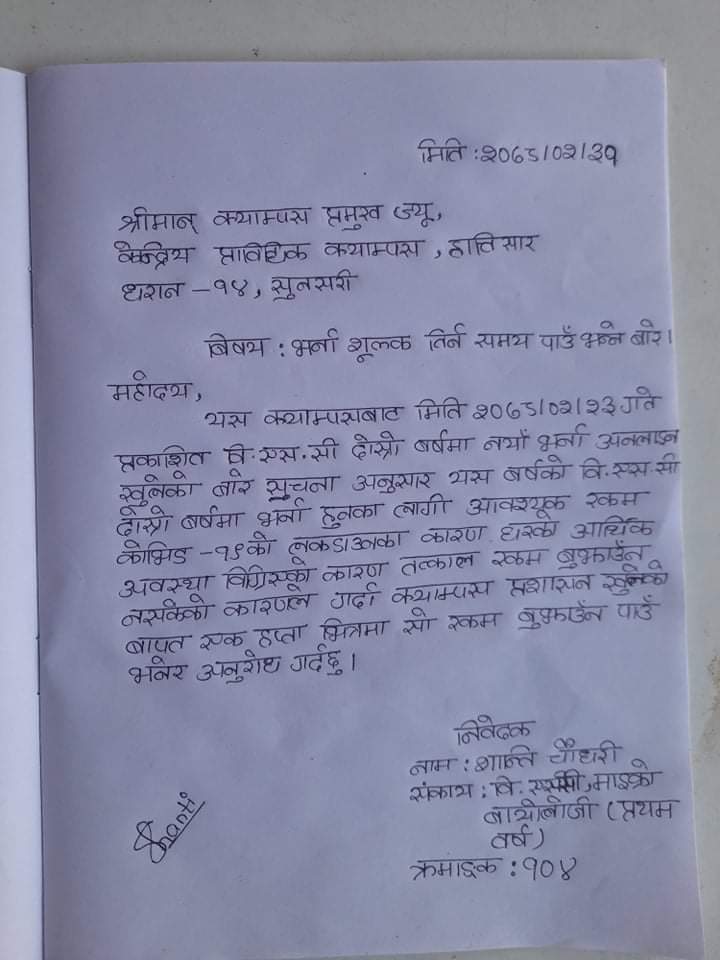 मिति : २०७८/०२/३१
श्रीमान् क्याम्पस प्रमुख ज्यू,
केन्द्रिय प्राविधिक क्याम्पस , हात्तिसार
धरान - १४ , सुनसरी
बिषय : भर्ना शूलक तिर्न समय पाउँ भन्ने बारे।
महोदय,
यस क्याम्पसबाट मिति २०७८/०२/२३ गते
प्रकाशित वि.एस.सी दोस्रो बर्षमा नयाँ भर्ना अनलाइन
खुलेको बारे सुचना अनुसार यस बर्षको वि.एस.सी
दोस्रो बर्षमा भर्ना हुनका लागी आवश्यक रकम
कोभिड -१९को लकडाउनका कारण घरको आर्थिक
अवस्था विग्रिएको कारण तत्काल रकम बुझाउँन
नसकेको कारणले गर्दा क्याम्पस प्रशासन खुलेको
बापत एक हप्ता भित्रमा सो रकम बुझाउँन पाउँ
भनेर अनुरोध गर्दछु।
निवेदक
नाम : शान्ति चौधरी
संकाय : वि. एससी, माइक्रो
बायोलोजी (प्रथम
वर्ष)
Shanti
क्रमाङक : १०४